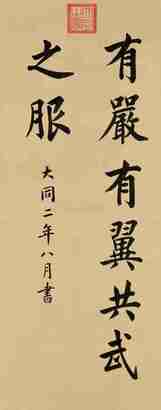 有嚴有翼共武
之服
大同二年八月書